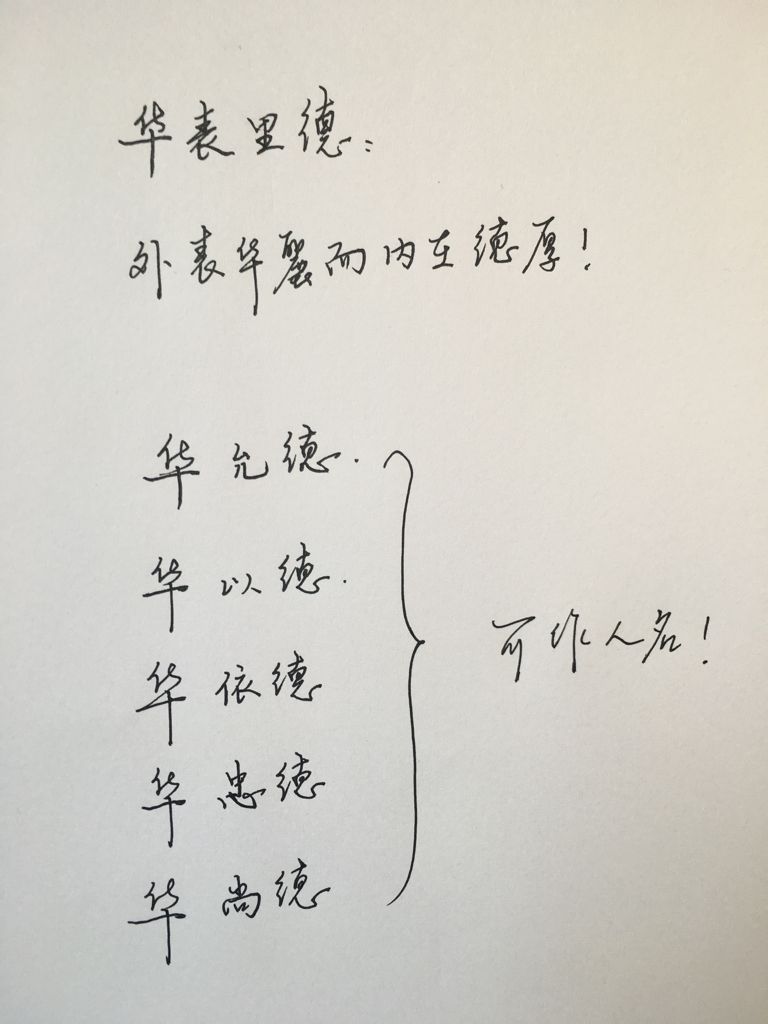 华表里德：
外表华丽而内在德厚！
华允德.
华以德.
华依德
华忠德
华尚德
可作人名！